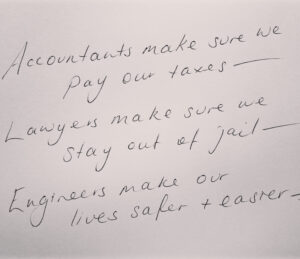 Accountants make sure we
pay our taxes —
Lawyers make sure we
stay out of jail —
Engineers make our
lives safer + easier —